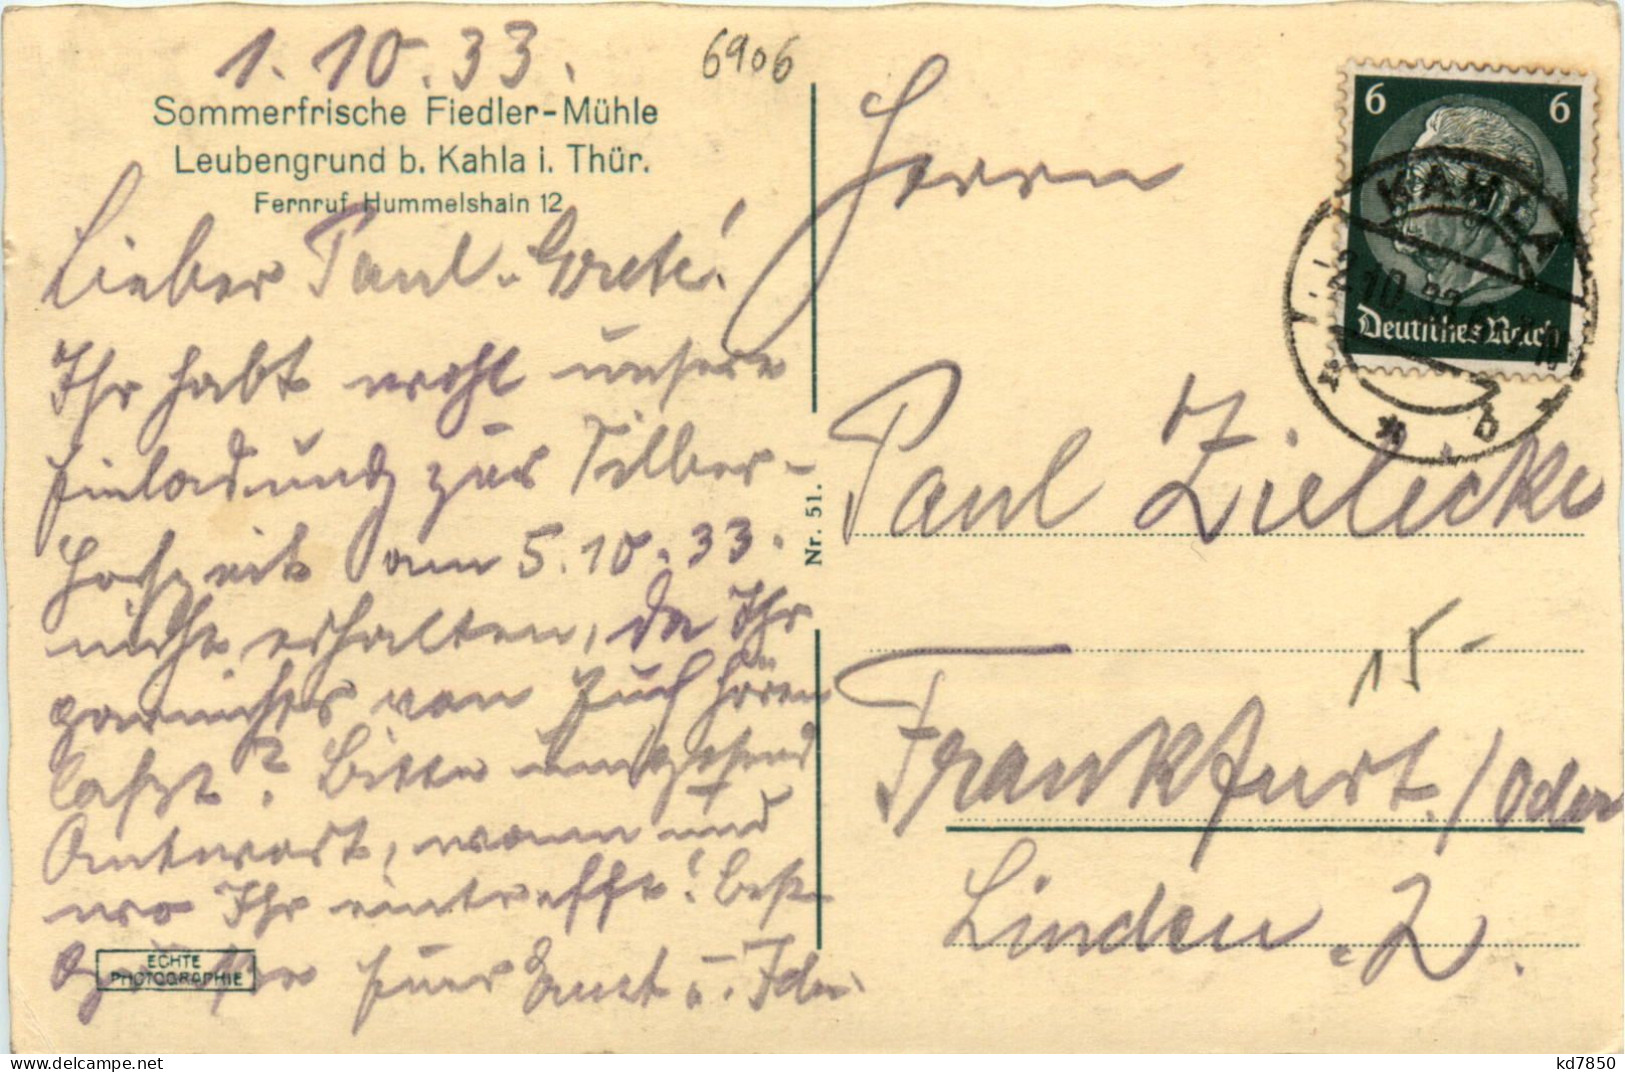 1.10.33.
6906
Sommerfrische Fiedler-Mühle
Leubengrund b. Kahla i. Thür.
Fernruf Hummelshain 12
Lieber Paul u. Grete!
Ihr habt wohl unsere
Einladung zur Silber-
Hochzeit am 5.10.33.
nicht erhalten, da Ihr
garnichts von Euch hören
laßt? Bitte umgehend
Antwort, wann und
wo Ihr eintrefft! Beste
Grüße Eure u.
ECHTE
PHOTOGRAPHIE
Nr. 51.
Herrn
Paul Zielecke
15-
Frankfurt./Oder
Linden. 2.
6 6
Deutsches Reich
KAHLA
2.10.33
b
kd7850